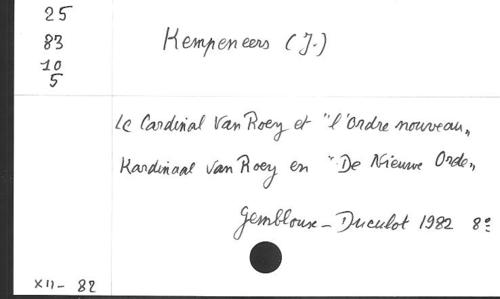 25
83
10
5
Kempeneers (J.)
Le Cardinal Van Roey et "l'Ordre nouveau„
Kardinaal Van Roey en "De Nieuwe Orde„
Gembloux - Duculot 1982 8°
XII - 82